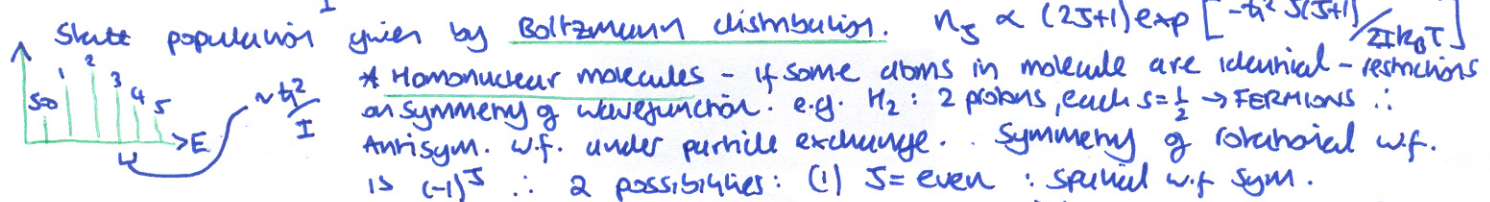 State population given by Boltzmann distribution. n_J ∝ (2J+1) exp[-ħ² J(J+1)/2Ik_BT]
* Homonuclear molecules - if some atoms in molecule are identical - restrictions
on symmetry of wavefunction. e.g. H₂ : 2 protons, each s=½ → FERMIONS ∴
Antisym. w.f. under particle exchange. . Symmetry of rotational w.f.
is (-1)^J ∴ 2 possibilities: (1) J=even : spatial w.f sym.
J=0 1 2 3 4 5 >E
~ħ²/I